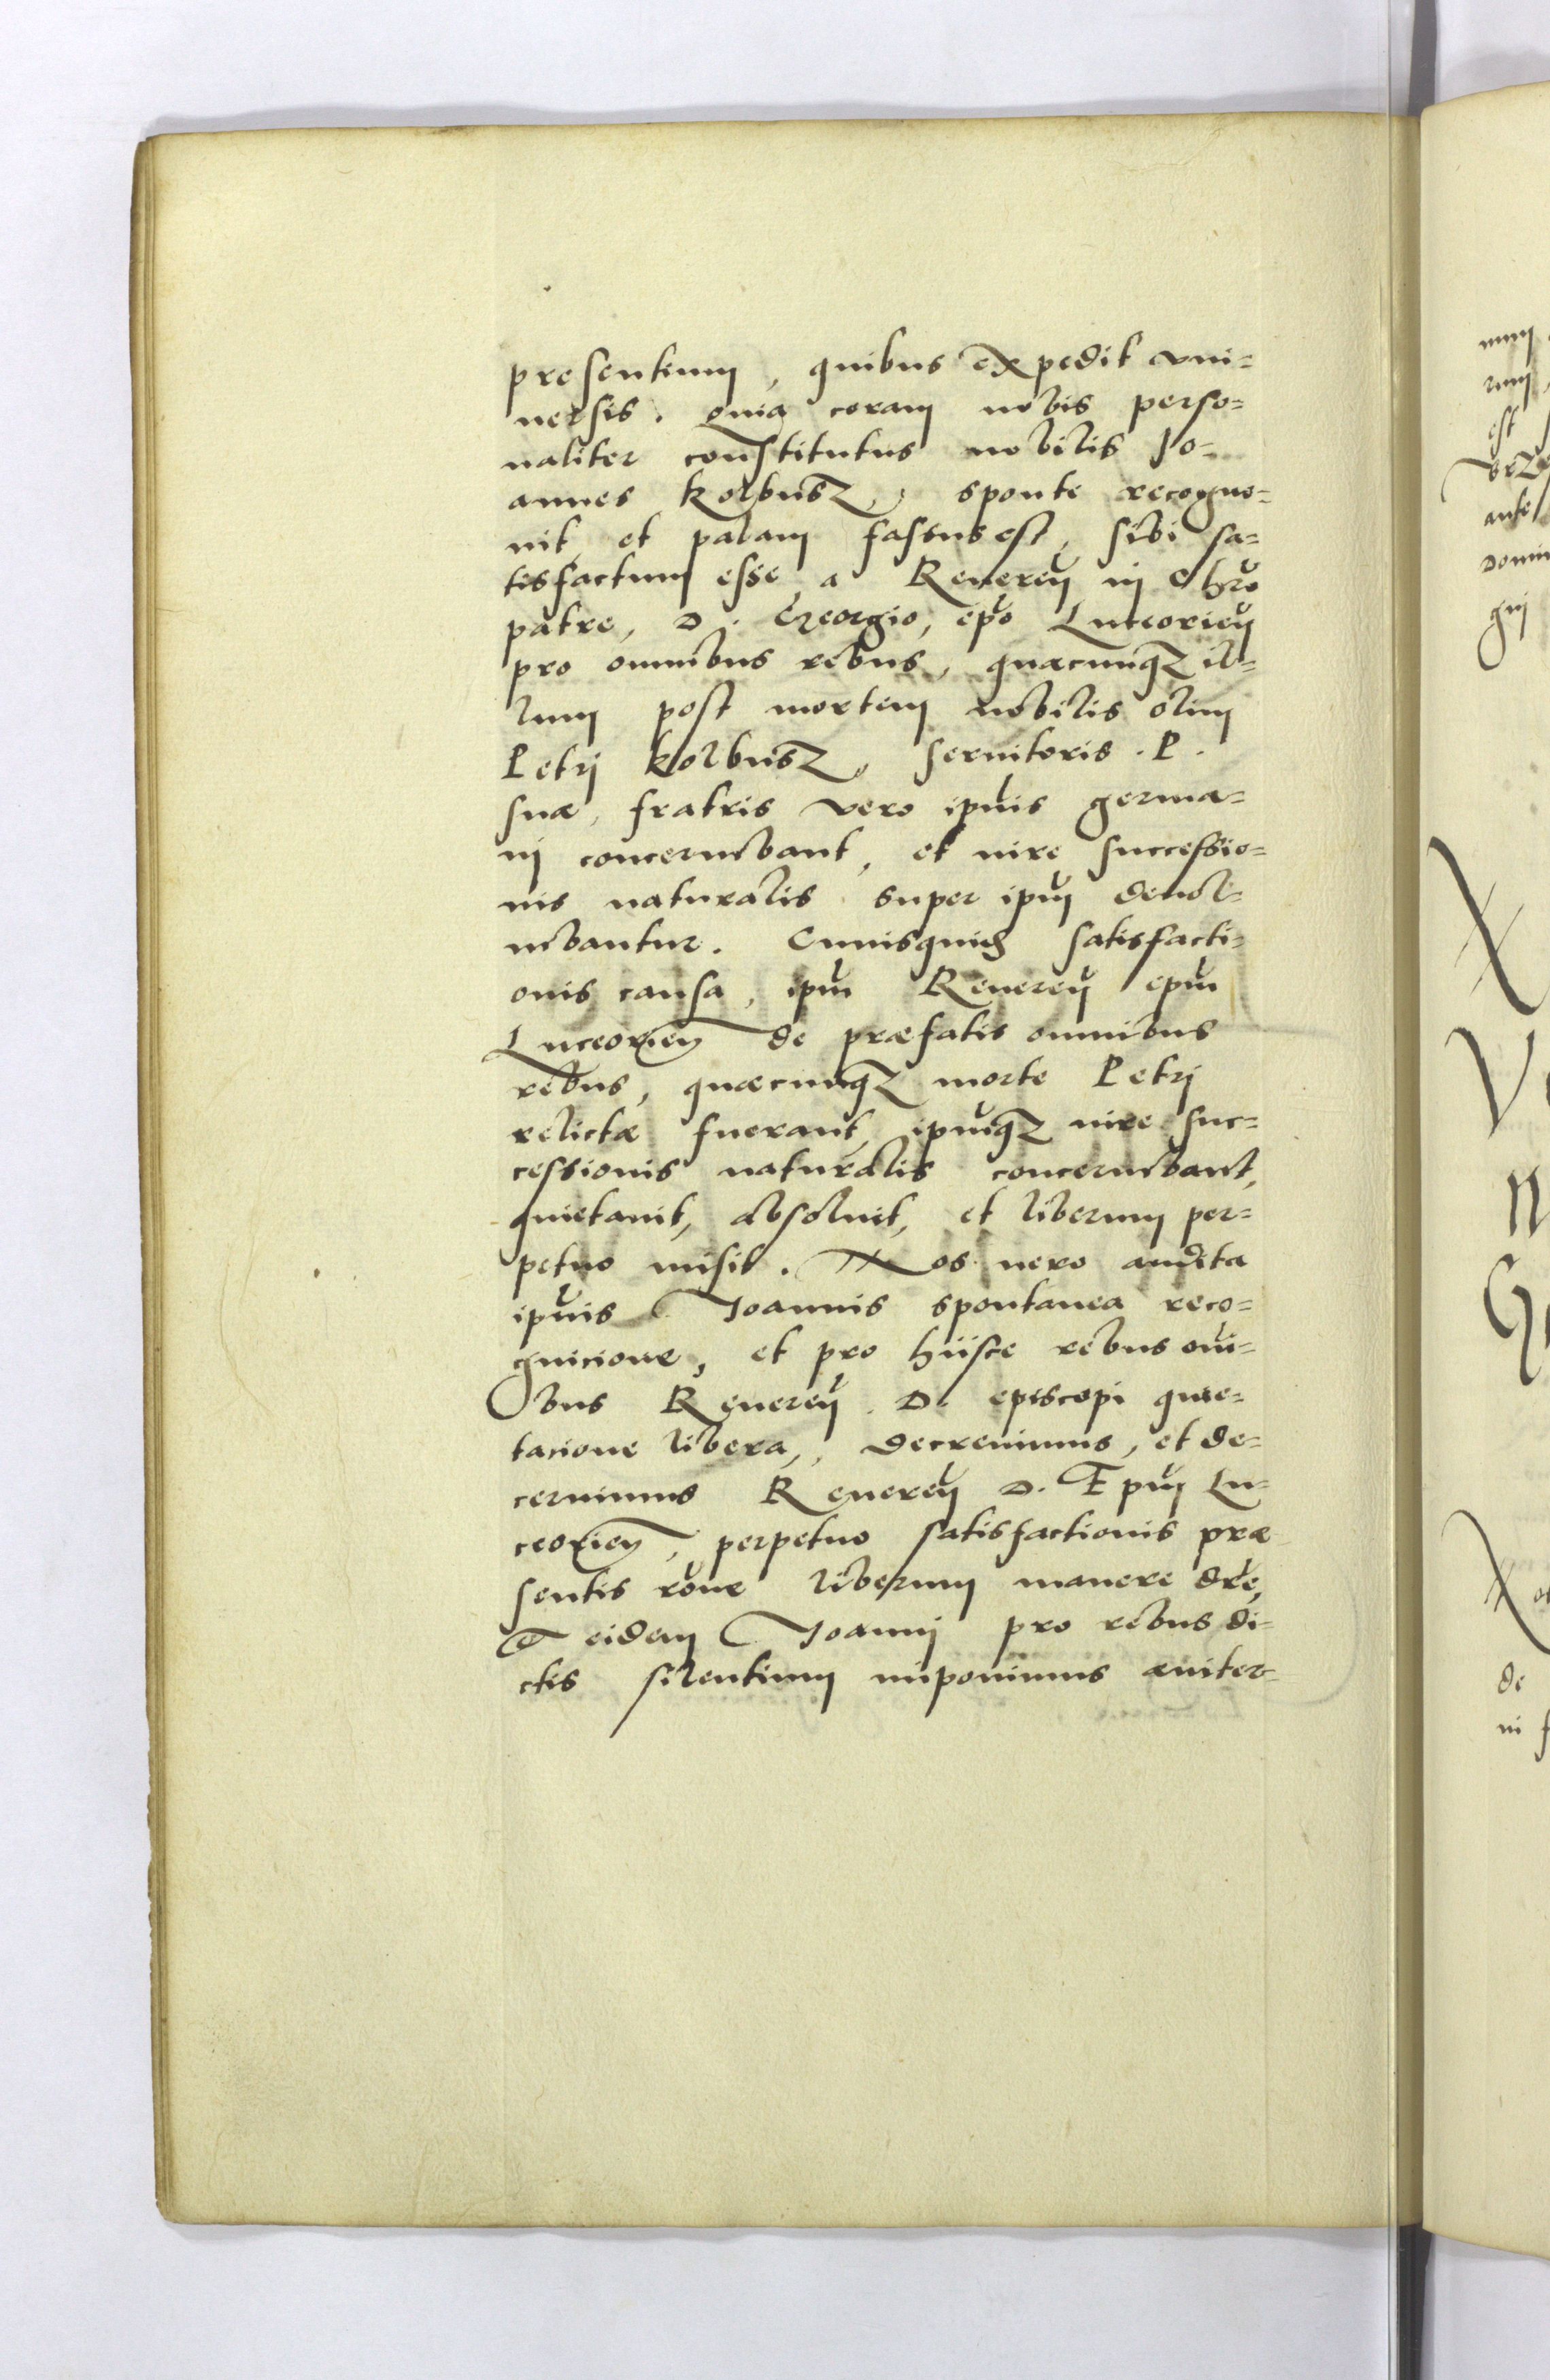 presentium, quibus expedit vni=
uersis. Quia coram nobis perso=
naliter constitutus nobilis Jo=
annes Kolbusz, sponte recogno=
uit, et palam fassus est, sibi sa=
tisfactum esse a Reueren in Chro
patre, D. Georgio, epo Luceorien
pro omnibus rebus, quaecunqz il=
lum post mortem nobilis olim
Petri Kolbusz, seruitoris .P.
suae, fratris vero ipius germa=
ni concernebant, et iure successio=
nis naturalis super ipm deuol=
uebantur. Cuiusquid satisfacti=
onis causa, ipm Reueren epm
Luceorien de praefatis omnibus
rebus, quaecunqz morte Petri
relictae fuerant, ipmqz iure suc=
cessionis naturalis concernebant,
quietauit, absoluit, et liberum per=
petuo misit. Nos vero audita
ipius Joannis spontanea reco=
gnicione, et pro hiisce rebus omi=
bus Reueren D. episcopi quie=
tacione libera, decreuimus, et de=
cernimus Reueren D. Epm Lu=
ceorien, perpetuo satisfactionis prae
sentis rone liberum manere dre,
et eidem Joanni pro rebus di=
ctis silentium imponimus aeuiter=